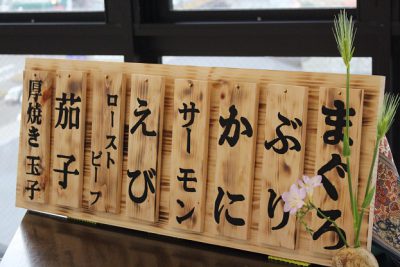 まぐろ
ぶり
かに
サーモン
えび
ローストビーフ
茄子
厚焼き玉子